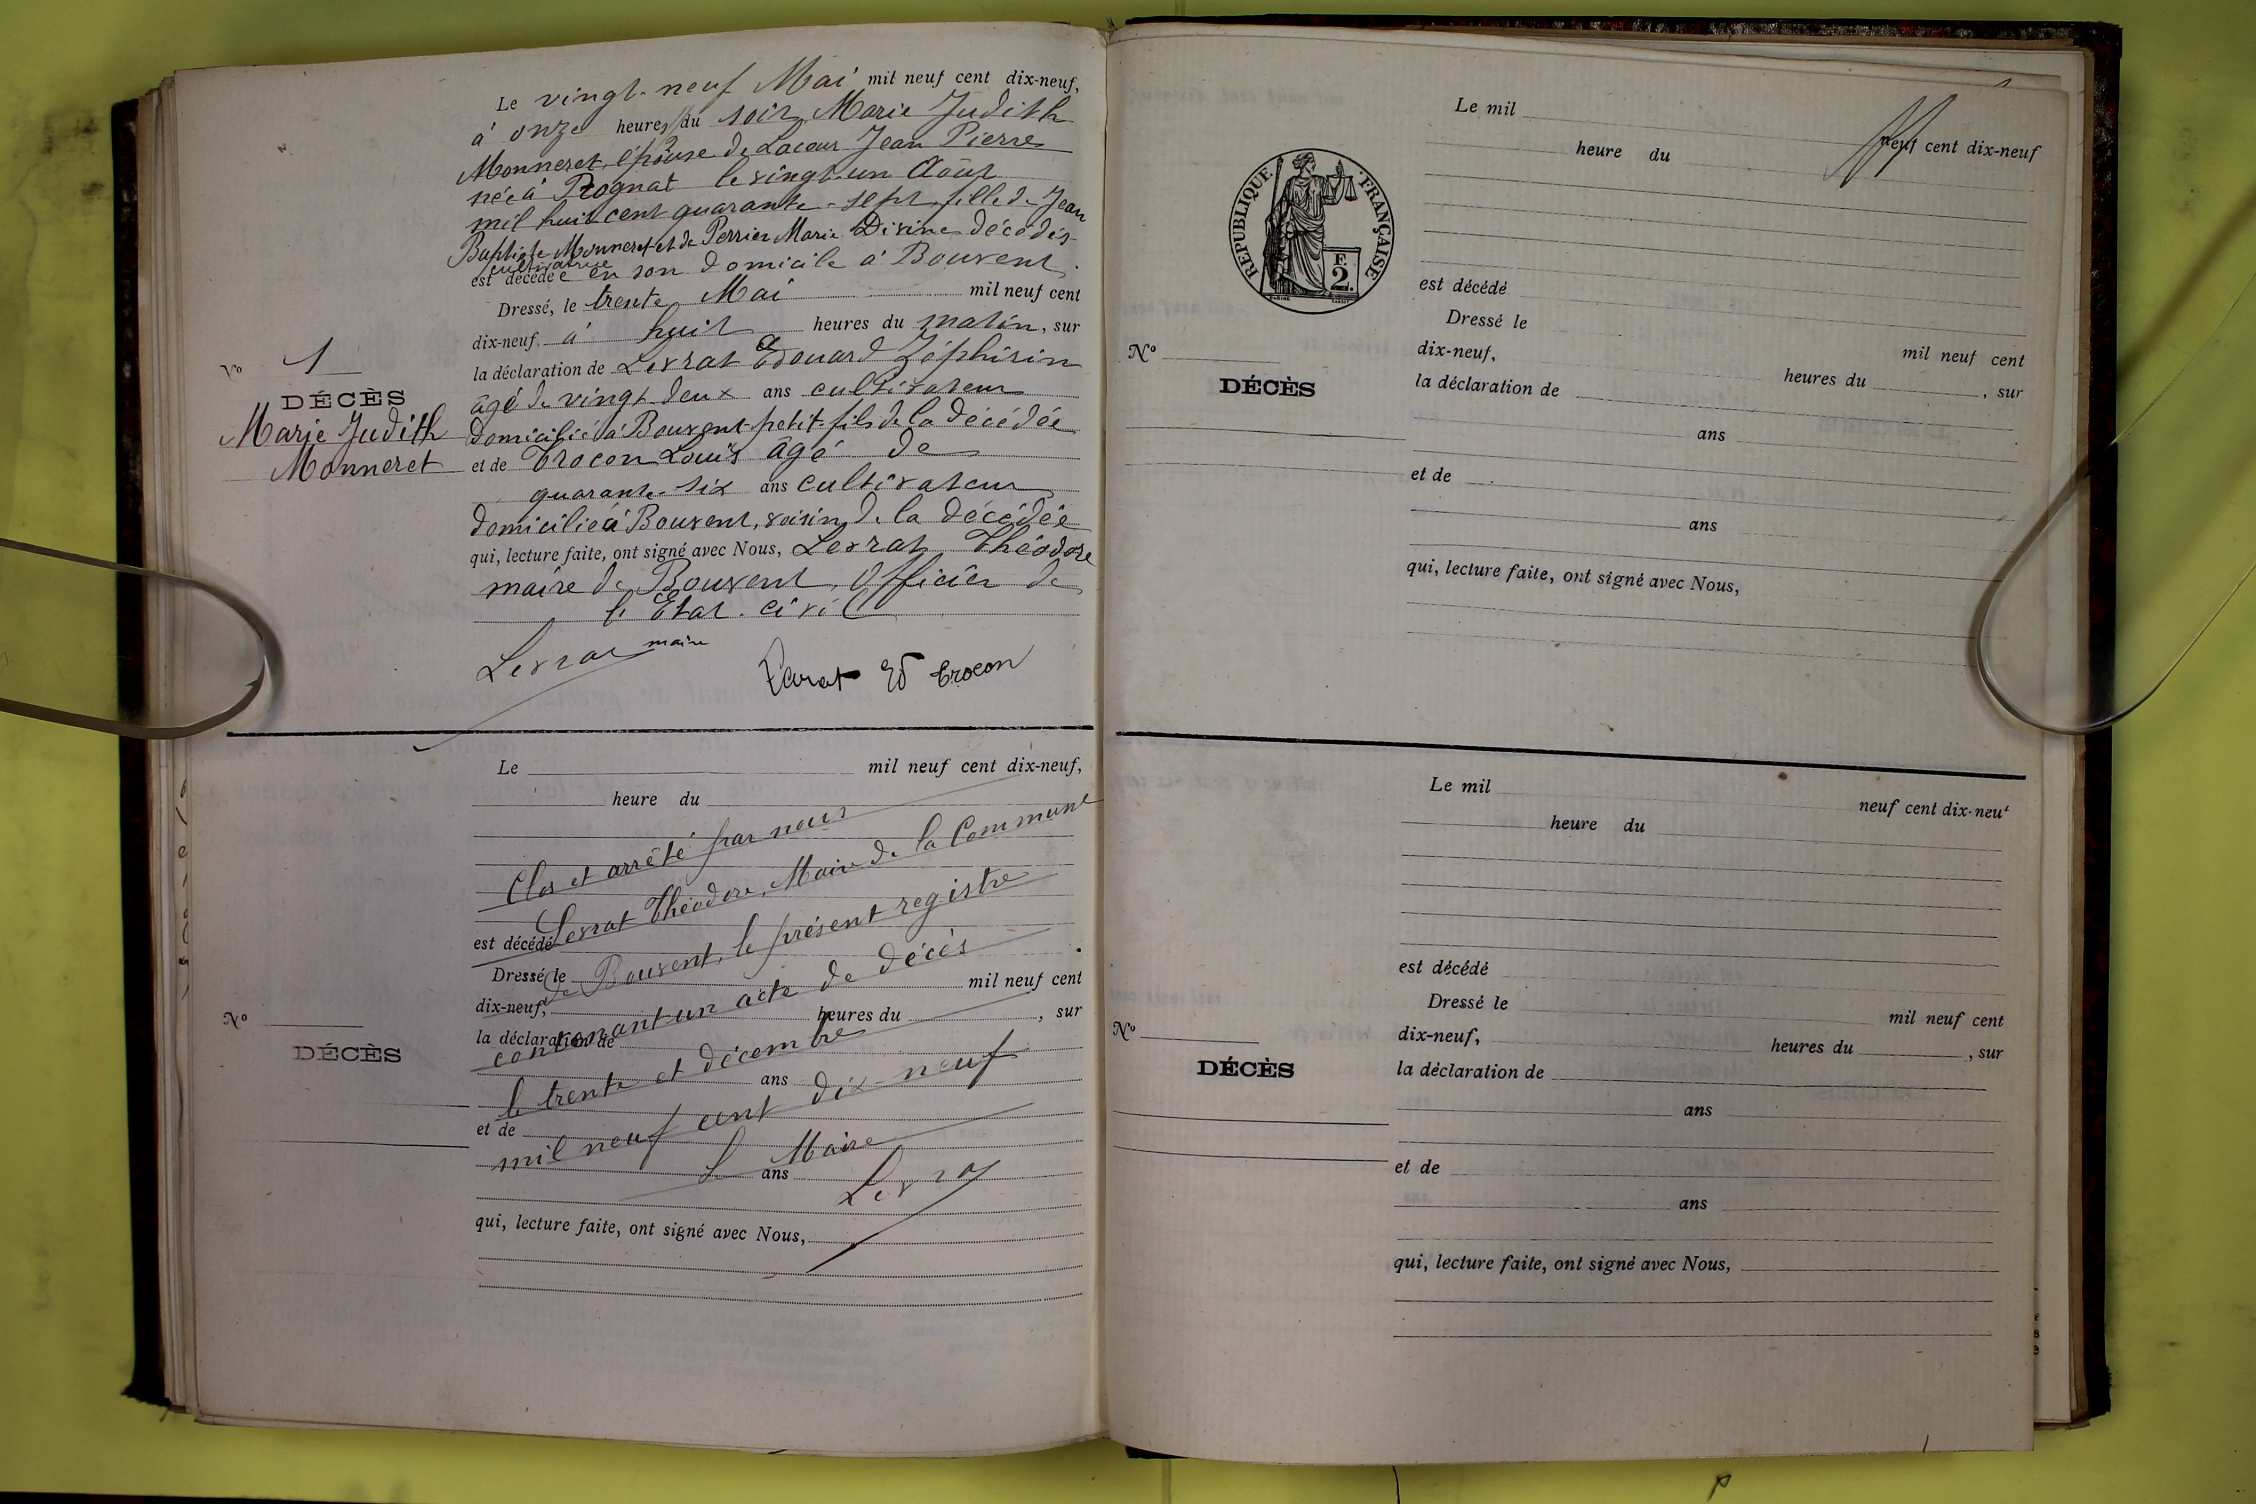 Le vingt-neuf Mai mil neuf cent dix-neuf,
à onze heures du soir Marie Judith
Monneret, épouse de Lacour Jean Pierre
née à Rognat le vingt-un Août
mil huit cent quarante-sept, fille de Jean
Baptiste Monneret et de Perrier Marie Divine décédés
cultivatrice
est décédée en son domicile à Bouvent.
Dressé, le trente Mai mil neuf cent
dix-neuf, à huit heures du matin, sur
la déclaration de Levrat Edouard Zéphirin
âgé de vingt deux ans cultivateur
domicilié à Bouvent petit-fils de la décédée
et de Crocon Louis âgé de
quarante-six ans cultivateur
domicilié à Bouvent, voisin de la décédée
qui, lecture faite, ont signé avec Nous, Levrat Théodore
maire de Bouvent, Officier de
l'Etat-civil
Levrat maire
Levrat Ed Crocon
No 1
DÉCÈS
Marie Judith
Monneret
Le mil neuf cent dix-neuf,
heure du
Clos et arrêté par nous
Levrat Théodore, Maire de la Commune
est décédé
de Bouvent, le présent registre
Dressé, le mil neuf cent
contenant un acte de décès
dix-neuf, heures du , sur
la déclaration de
le trente et décembre
ans
mil neuf cent dix-neuf
et de
Le Maire
ans
Levrat
qui, lecture faite, ont signé avec Nous,
No
DÉCÈS
Le mil
neuf cent dix-neuf
heure du
RÉPUBLIQUE FRANÇAISE
F.
2.
est décédé
Dressé le
mil neuf cent
dix-neuf,
heures du , sur
la déclaration de
ans
et de
ans
qui, lecture faite, ont signé avec Nous,
No
DÉCÈS
Le mil
neuf cent dix-neuf
heure du
est décédé
Dressé le
mil neuf cent
dix-neuf,
heures du , sur
la déclaration de
ans
et de
ans
qui, lecture faite, ont signé avec Nous,
No
DÉCÈS